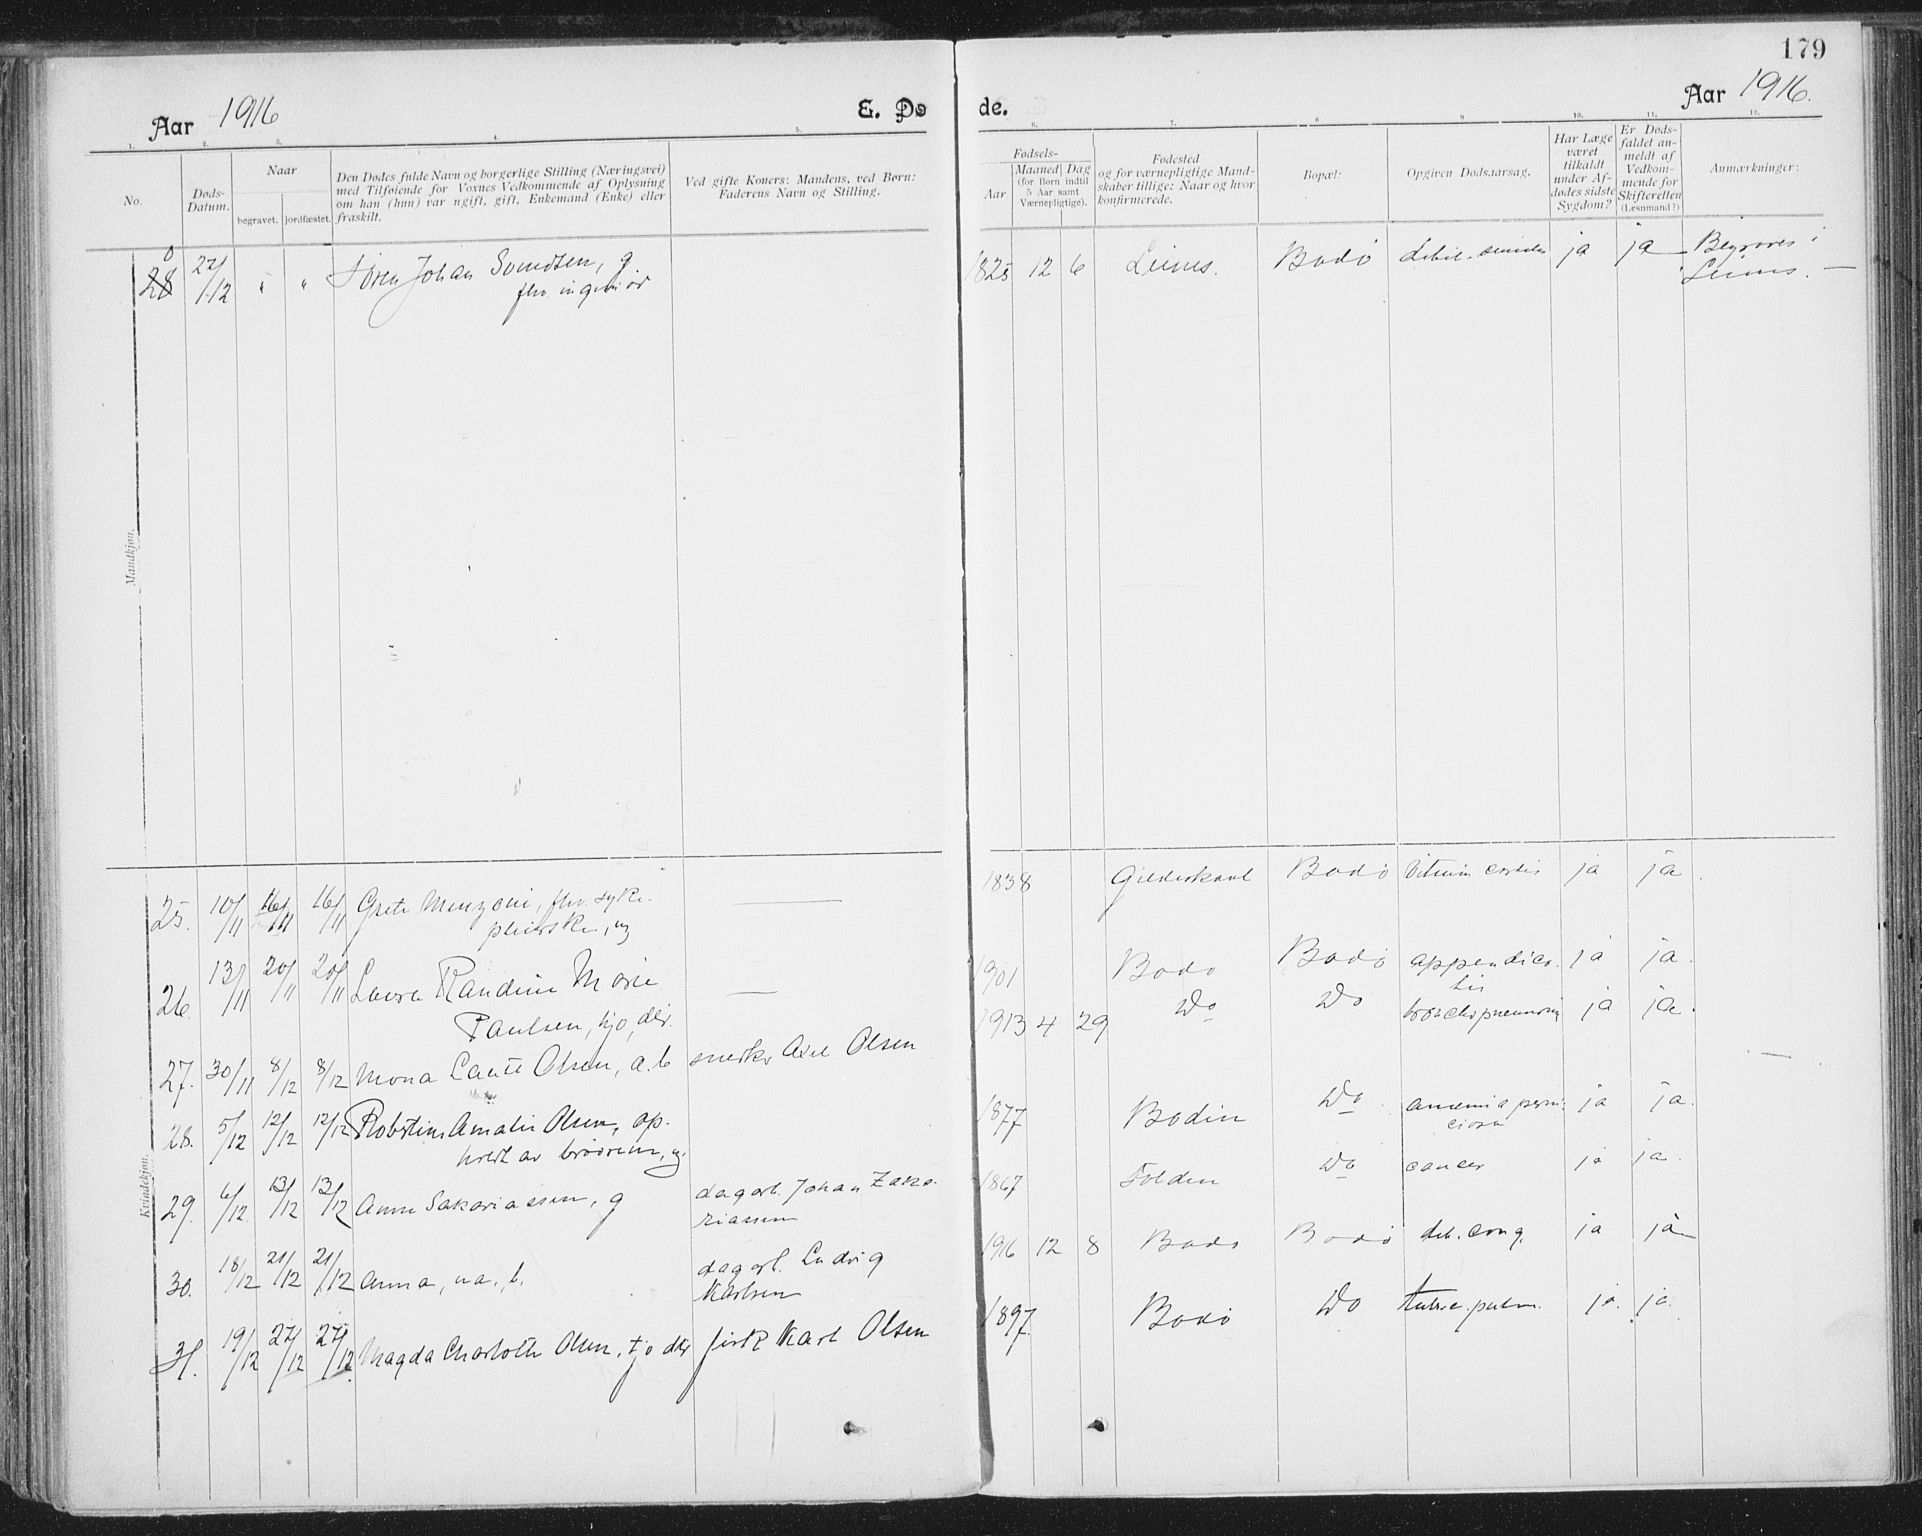 179
Aar 1916
E. Døde.
Aar 1916.
1. 2. 3. 4. 5. 6. 7. 8. 9. 10. 11. 12.
No.
Døds-
Datum.
Naar
begravet. jordfæstet.
Den Dødes fulde Navn og borgerlige Stilling (Næringsvei)
med Tilføiende for Voxnes Vedkommende af Oplysning
om han (hun) var ugift, gift, Enkemand (Enke) eller
fraskilt.
Ved gifte Koner: Mandens, ved Børn:
Faderens Navn og Stilling.
Fødsels-
Aar
Maaned Dag
(for Børn indtil
5 Aar samt
Værnepligtige).
Fødested
og for værnepligtige Mand-
skaber tillige: Naar og hvor
konfirmerede.
Bopæl:
Opgiven Dødsaarsag.
Har Læge
været
tilkaldt
under Af-
dødes sidste
Sygdom?
Er Døds-
faldet an-
meldt af
Vedkom-
mende for
Skifteretten
(Lensmand?)
Anmærkninger:
Mandkjøn.
28 0 27/12 " " Sören Johan Svendsen, g
fhv. ingeniör
1825 12 6 Bodö debil. senilis ja ja Begraves i
Kvindekjøn.
25. 10/11 16/11 16/11 Grete fhv. syke-
pleierske, ug
1838 Gildeskaal Bodö Vitium cordis ja ja.
26. 13/11 20/11 20/11 Laura Randine Marie
Paulsen, tjo, dtr.
1901 Bodö Bodö appendici-
tis ja ja.
27. 30/11 8/12 8/12 Mona Olsen, a.b snedker Axel Olsen
1913 4 29 Do Do bronchopneumoni ja ja.
28. 5/12 12/12 12/12 Amalie Olsen, op-
holdt av ug.
1877 Bodin Do anæmia perni-
ciosa ja ja.
29. 6/12 13/12 13/12 Anne Sakariassen, g dagarb. Johan Zaka-
riassen
1867 Folden Do cancer ja ja.
30. 18/12 21/12 21/12 Anna, ua, b. dagarb. Ludvig
Karlsen
1916 12 8 Bodö Bodö deb. cong. ja ja
31. 19/12 27/12 27/12 Magda Charlotte Olsen, tjo dtr fisk Karl Olsen
1897 Bodö Do tuberc. pulm. ja. ja.